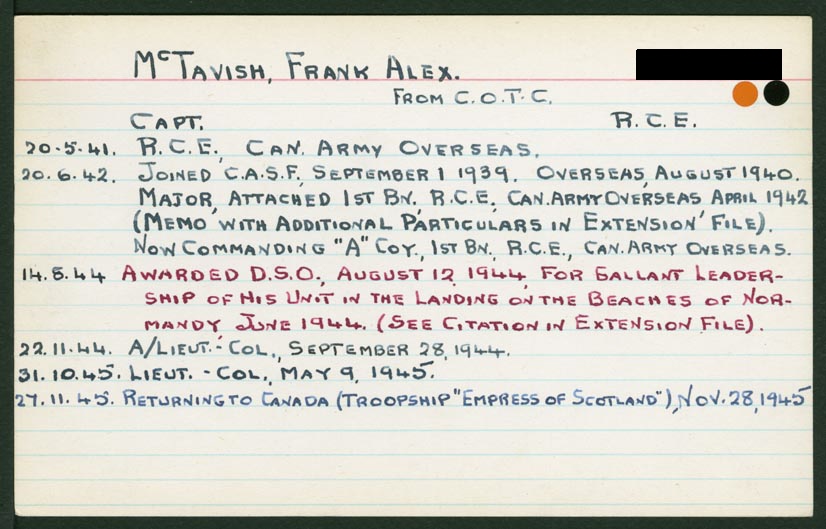 McTavish, Frank Alex.
From C.O.T.C.
Capt. R.C.E.
20.5.41. R.C.E., Can. Army Overseas.
20.6.42. Joined C.A.S.F., September 1 1939. Overseas, August 1940.
Major, Attached 1st Bn., R.C.E., Can. Army Overseas April 1942
(Memo with Additional Particulars in Extension' File).
Now Commanding "A" Coy., 1st Bn., R.C.E., Can. Army Overseas.
14.8.44 Awarded D.S.O., August 12, 1944, For Gallant Leader-
ship of His Unit in the Landing on the Beaches of Nor-
mandy June 1944. (See Citation in Extension File).
22.11.44. A/Lieut.-Col., September 28, 1944.
31.10.45. Lieut.-Col., May 9, 1945.
27.11.45. Returning to Canada (Troopship "Empress of Scotland"), Nov. 28, 1945